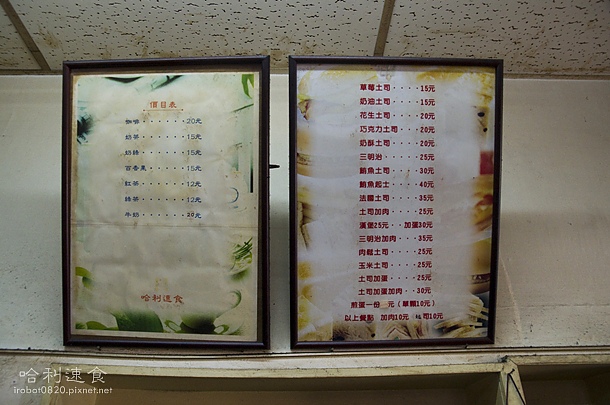 價目表
咖啡·······20元
奶茶·······15元
奶綠·······15元
百香果······15元
紅茶·······12元
綠茶·······12元
牛奶·······20元
哈利速食
草莓土司·····15元
奶油土司·····15元
花生土司·····20元
巧克力土司····20元
奶酥土司·····20元
三明治······25元
鮪魚土司·····30元
鮪魚起士·····40元
法國土司·····35元
土司加肉·····25元
漢堡25元··加蛋30元
三明治加肉····35元
肉鬆土司·····25元
玉米土司·····25元
土司加蛋·····25元
土司加蛋加肉···30元
煎蛋一份 元(單顆10元)
以上餐點 加肉10元 起司10元
哈利速食
irobot0820.pixnet.net